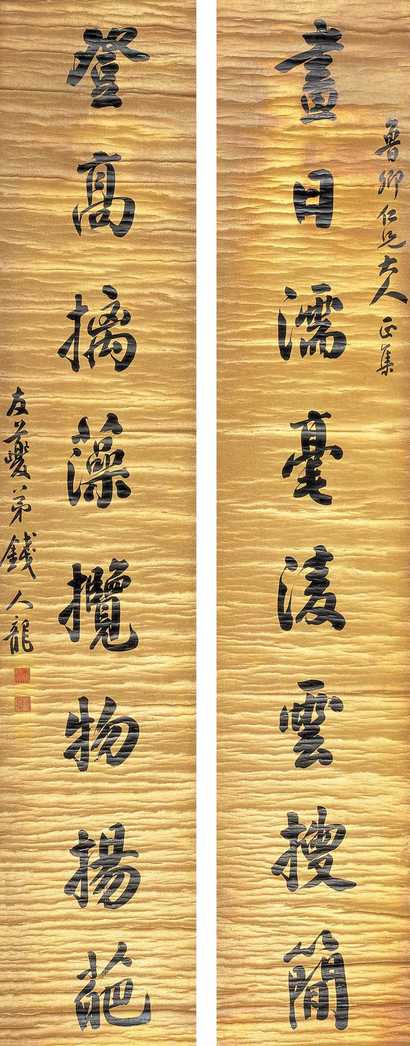 魯卿仁兄大人正集
晝日濡毫凌雲搜簡
登高摛藻攬物揚葩
友夔弟錢人龍